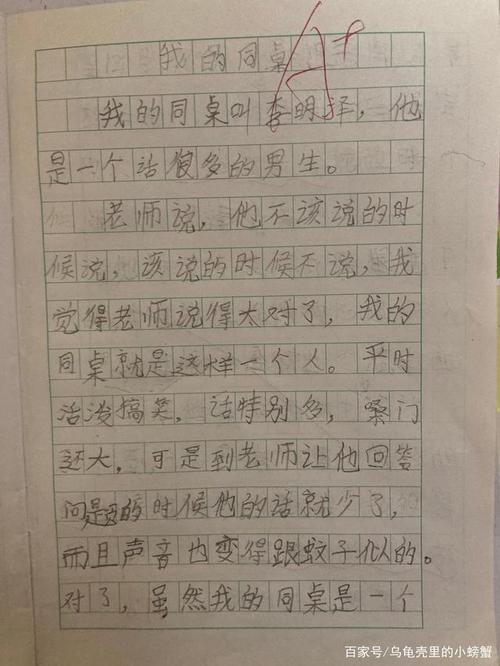 我的同桌
A+
我的同桌叫李明择，他
是一个话很多的男生。
老师说，他不该说的时
候说，该说的时候不说，我
觉得老师说得太对了，我的
同桌就是这样一个人。平时
活泼搞笑，话特别多，嗓门
还大，可是到老师让他回答
问题的时候他的话就少了，
而且声音也变得跟蚊子似的。
对了，虽然我的同桌是一个
百家号/乌龟壳里的小螃蟹